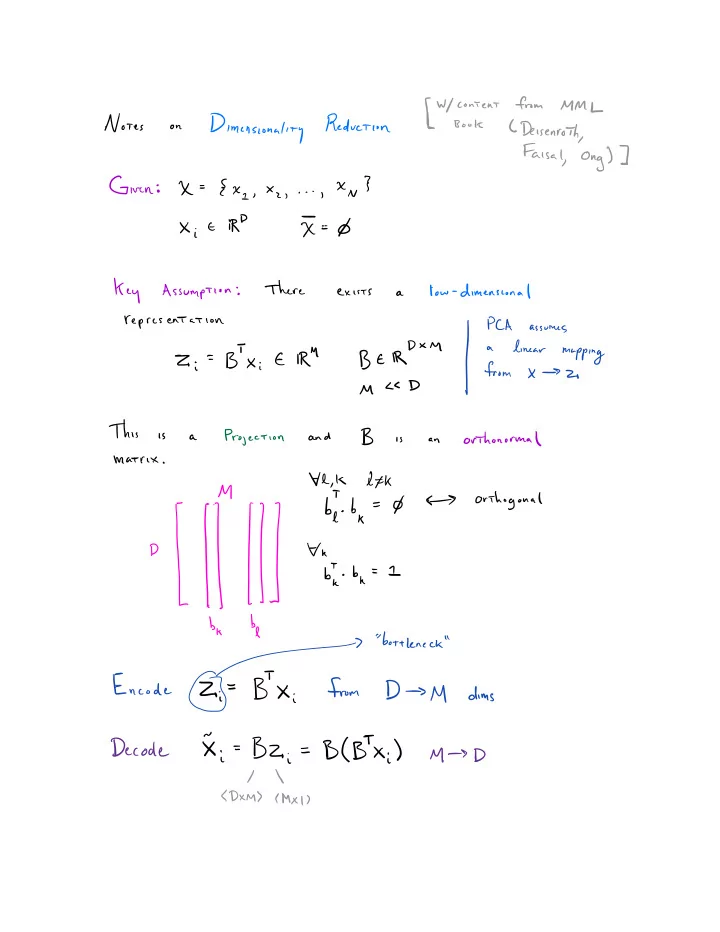 Notes on Dimensionality Reduction
[w/ content from MML
Book (Deisenroth,
Faisal, Ong)]
Given: X = {x₁, x₂, ..., x_N}
xᵢ ∈ ℝᴰ X̄ = ∅
Key Assumption: There exists a low-dimensional
representation
zᵢ = Bᵀxᵢ ∈ ℝᴹ B ∈ ℝᴰˣᴹ
M << D
PCA assumes
a linear mapping
from x → z
This is a Projection and B is an orthonormal
matrix.
M
D
b_k b_l
∀l,k l≠k
b_lᵀ · b_k = ∅ ↔ orthogonal
∀k
b_kᵀ · b_k = 1
"bottleneck"
Encode zᵢ = Bᵀxᵢ from D → M dims
Decode x̃ᵢ = Bzᵢ = B(Bᵀxᵢ) M → D
<DxM> (Mx1)